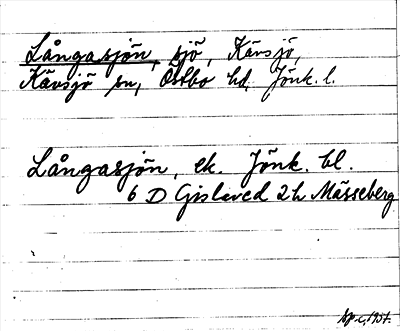 Långasjön, sjö, Kävsjö,
Kävsjö sn, Östbo hd, Jönk. l.
Långasjön, ek. Jönk. bl.
6 D Gislaved 2h Mässeberg